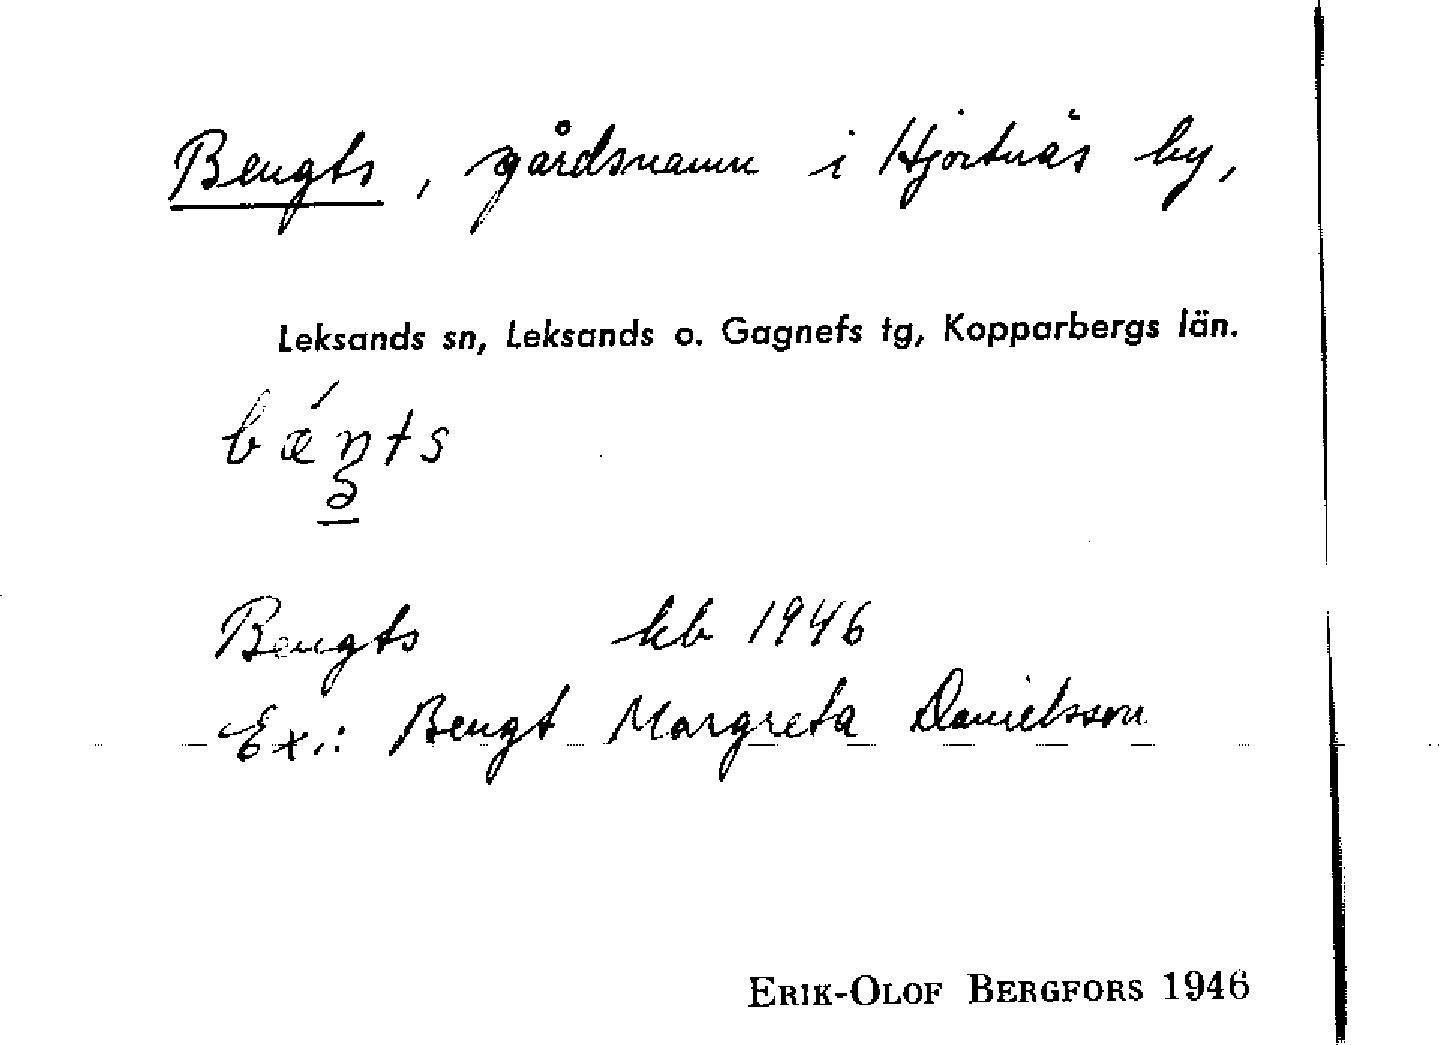 Bengts, gårdsnamn i Hjortnäs by,
Leksands sn, Leksands o. Gagnefs tg, Kopparbergs län.
Bengts kb 1946
Ex.: Bengt Margreta Danielsson
ERIK-OLOF BERGFORS 1946